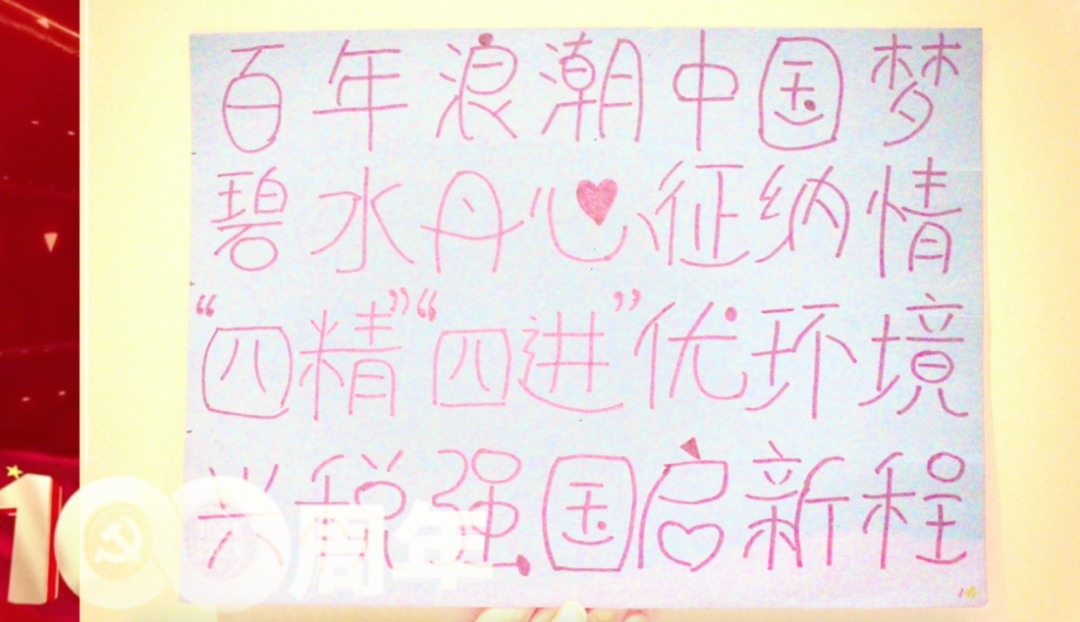 百年浪潮中国梦
碧水丹心征纳情
“四精”“四进”优环境
兴税强国启新程
100周年